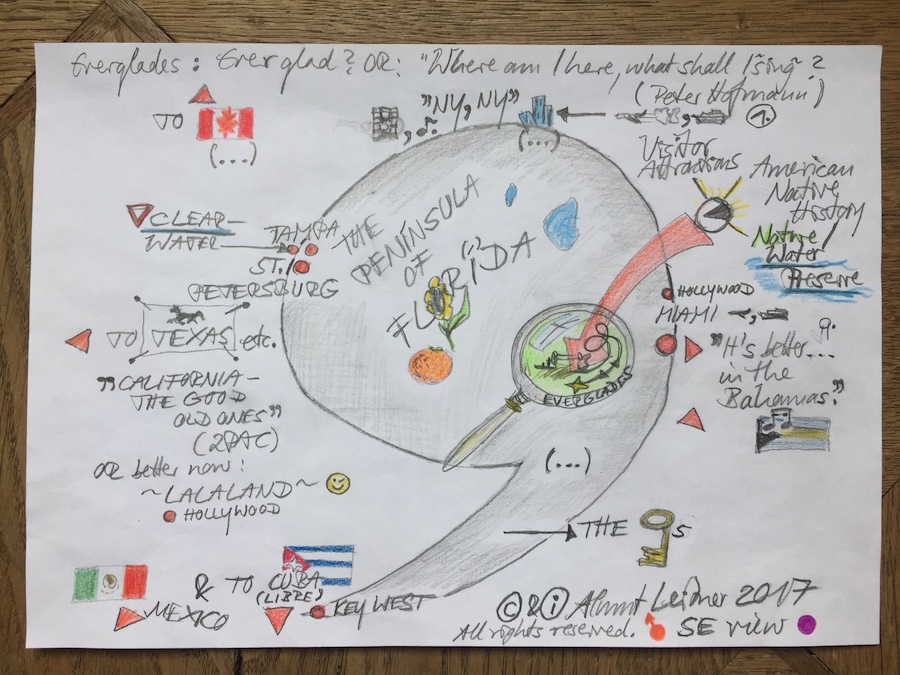 Everglades: Ever glad? OR: "Where am I here, what shall I sing?
(Peter Hofmann)
TO
(...)
"NY, NY"
(...)
1.
Visitor
Attractions
American
Native
History
Nature/
Water
Preserve
CLEAR-
WATER
TAMPA
ST.
PETERSBURG
THE
PENINSULA
OF
FLORIDA
HOLLYWOOD
MIAMI
TO TEXAS etc.
"It's better...
in the
Bahamas."
"CALIFORNIA-
THE GOOD
OLD ONES"
(2PAC)
OR better now:
~LALALAND~
HOLLYWOOD
EVERGLADES
(...)
THE S
& TO CUBA
(LIBRE)
MEXICO
KEY WEST
© & i Almut Leidner 2017
All rights reserved. SE view